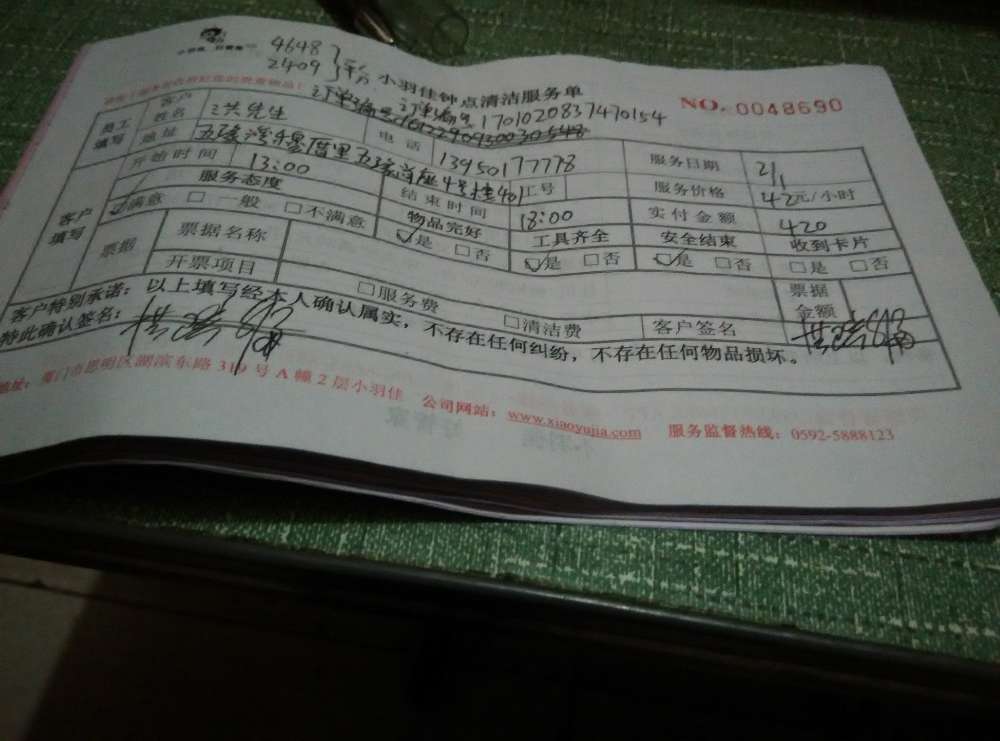 4648
2409 平分
小羽佳钟点清洁服务单
NO. 0048690
订单编号 17010208374470154
员工填写 客户姓名 洪先生 电话 13950177778 服务日期 2/1
地址 工号 服务价格 42元/小时
客户填写 开始时间 13:00 结束时间 18:00 实付金额 420
服务态度 物品完好 工具齐全 安全结束 收到卡片
☑满意 □一般 □不满意 ☑是 □否 ☑是 □否 ☑是 □否 □是 □否
票据 票据名称 票据金额
开票项目 □服务费 □清洁费 客户签名
客户特别承诺：以上填写经本人确认属实，不存在任何纠纷，不存在任何物品损坏。
特此确认签名：
地址：厦门市思明区湖滨东路319号A幢2层小羽佳 公司网站：www.xiaoyujia.com 服务监督热线：0592-5888123